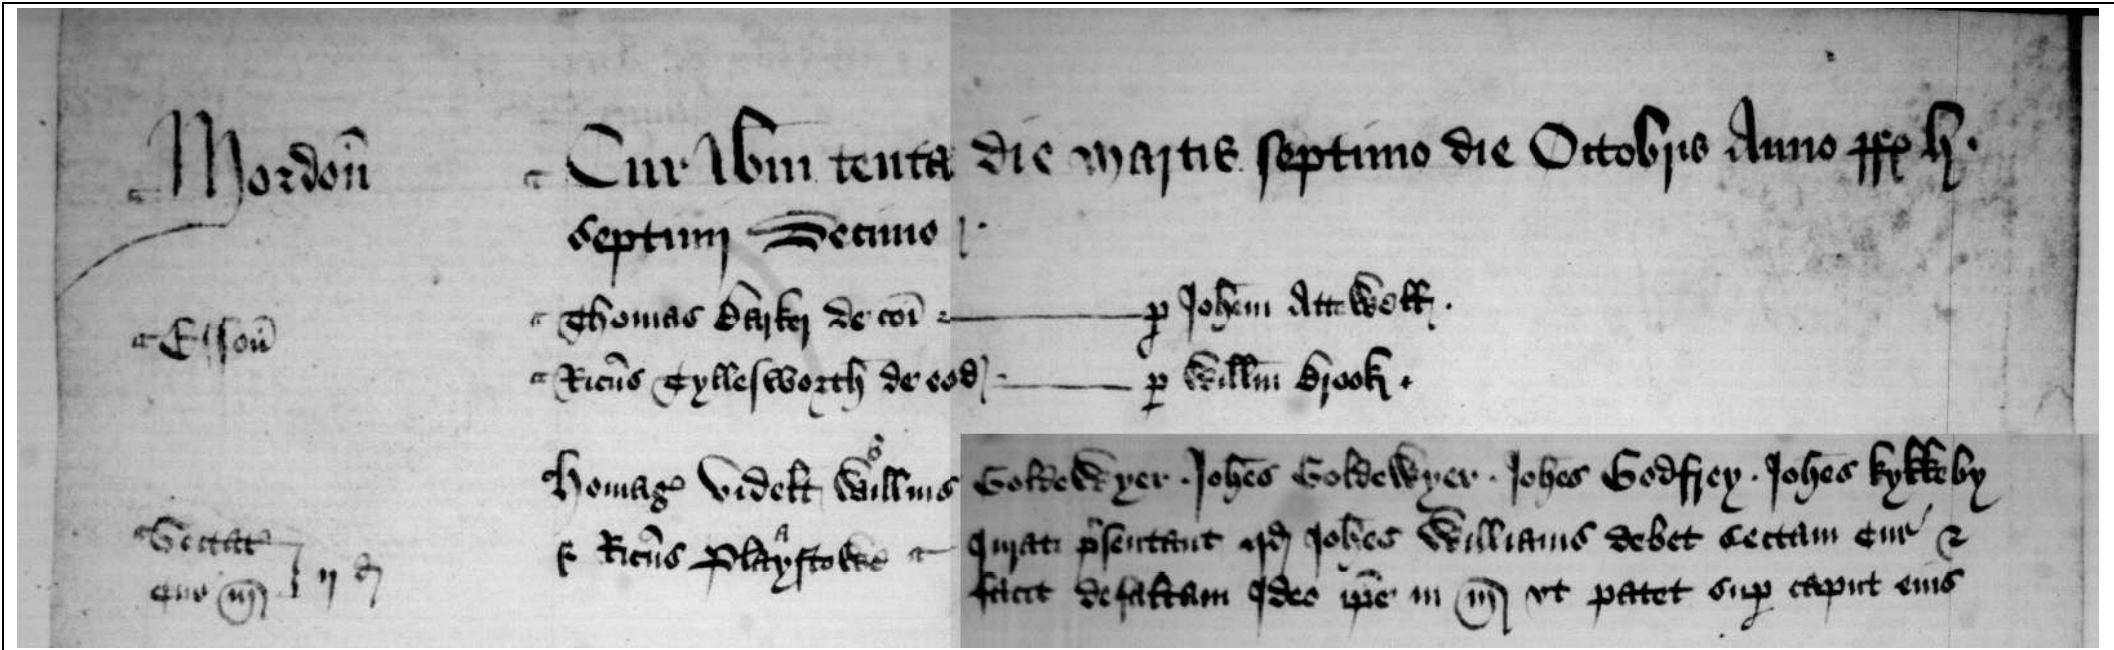 Mordoñ Cur Ibm tenta die martis septimo die Octobris Anno rr h.
septimi Decimo
Essoñ Thomas Barker de coi p Johem Attewell.
Ricus Tyllesworth de eod p Willm Brook.
Homag videlt Willms Goldewyer. Johes Goldewyer. Johes Godfrey. Johes kykkeby
Sectat & Ricus Playstowe Jurati psentant qd Johes Williams debet sectam cur &
cur m ij d facit defaltam Ideo ipe in m vt patet sup caput eius